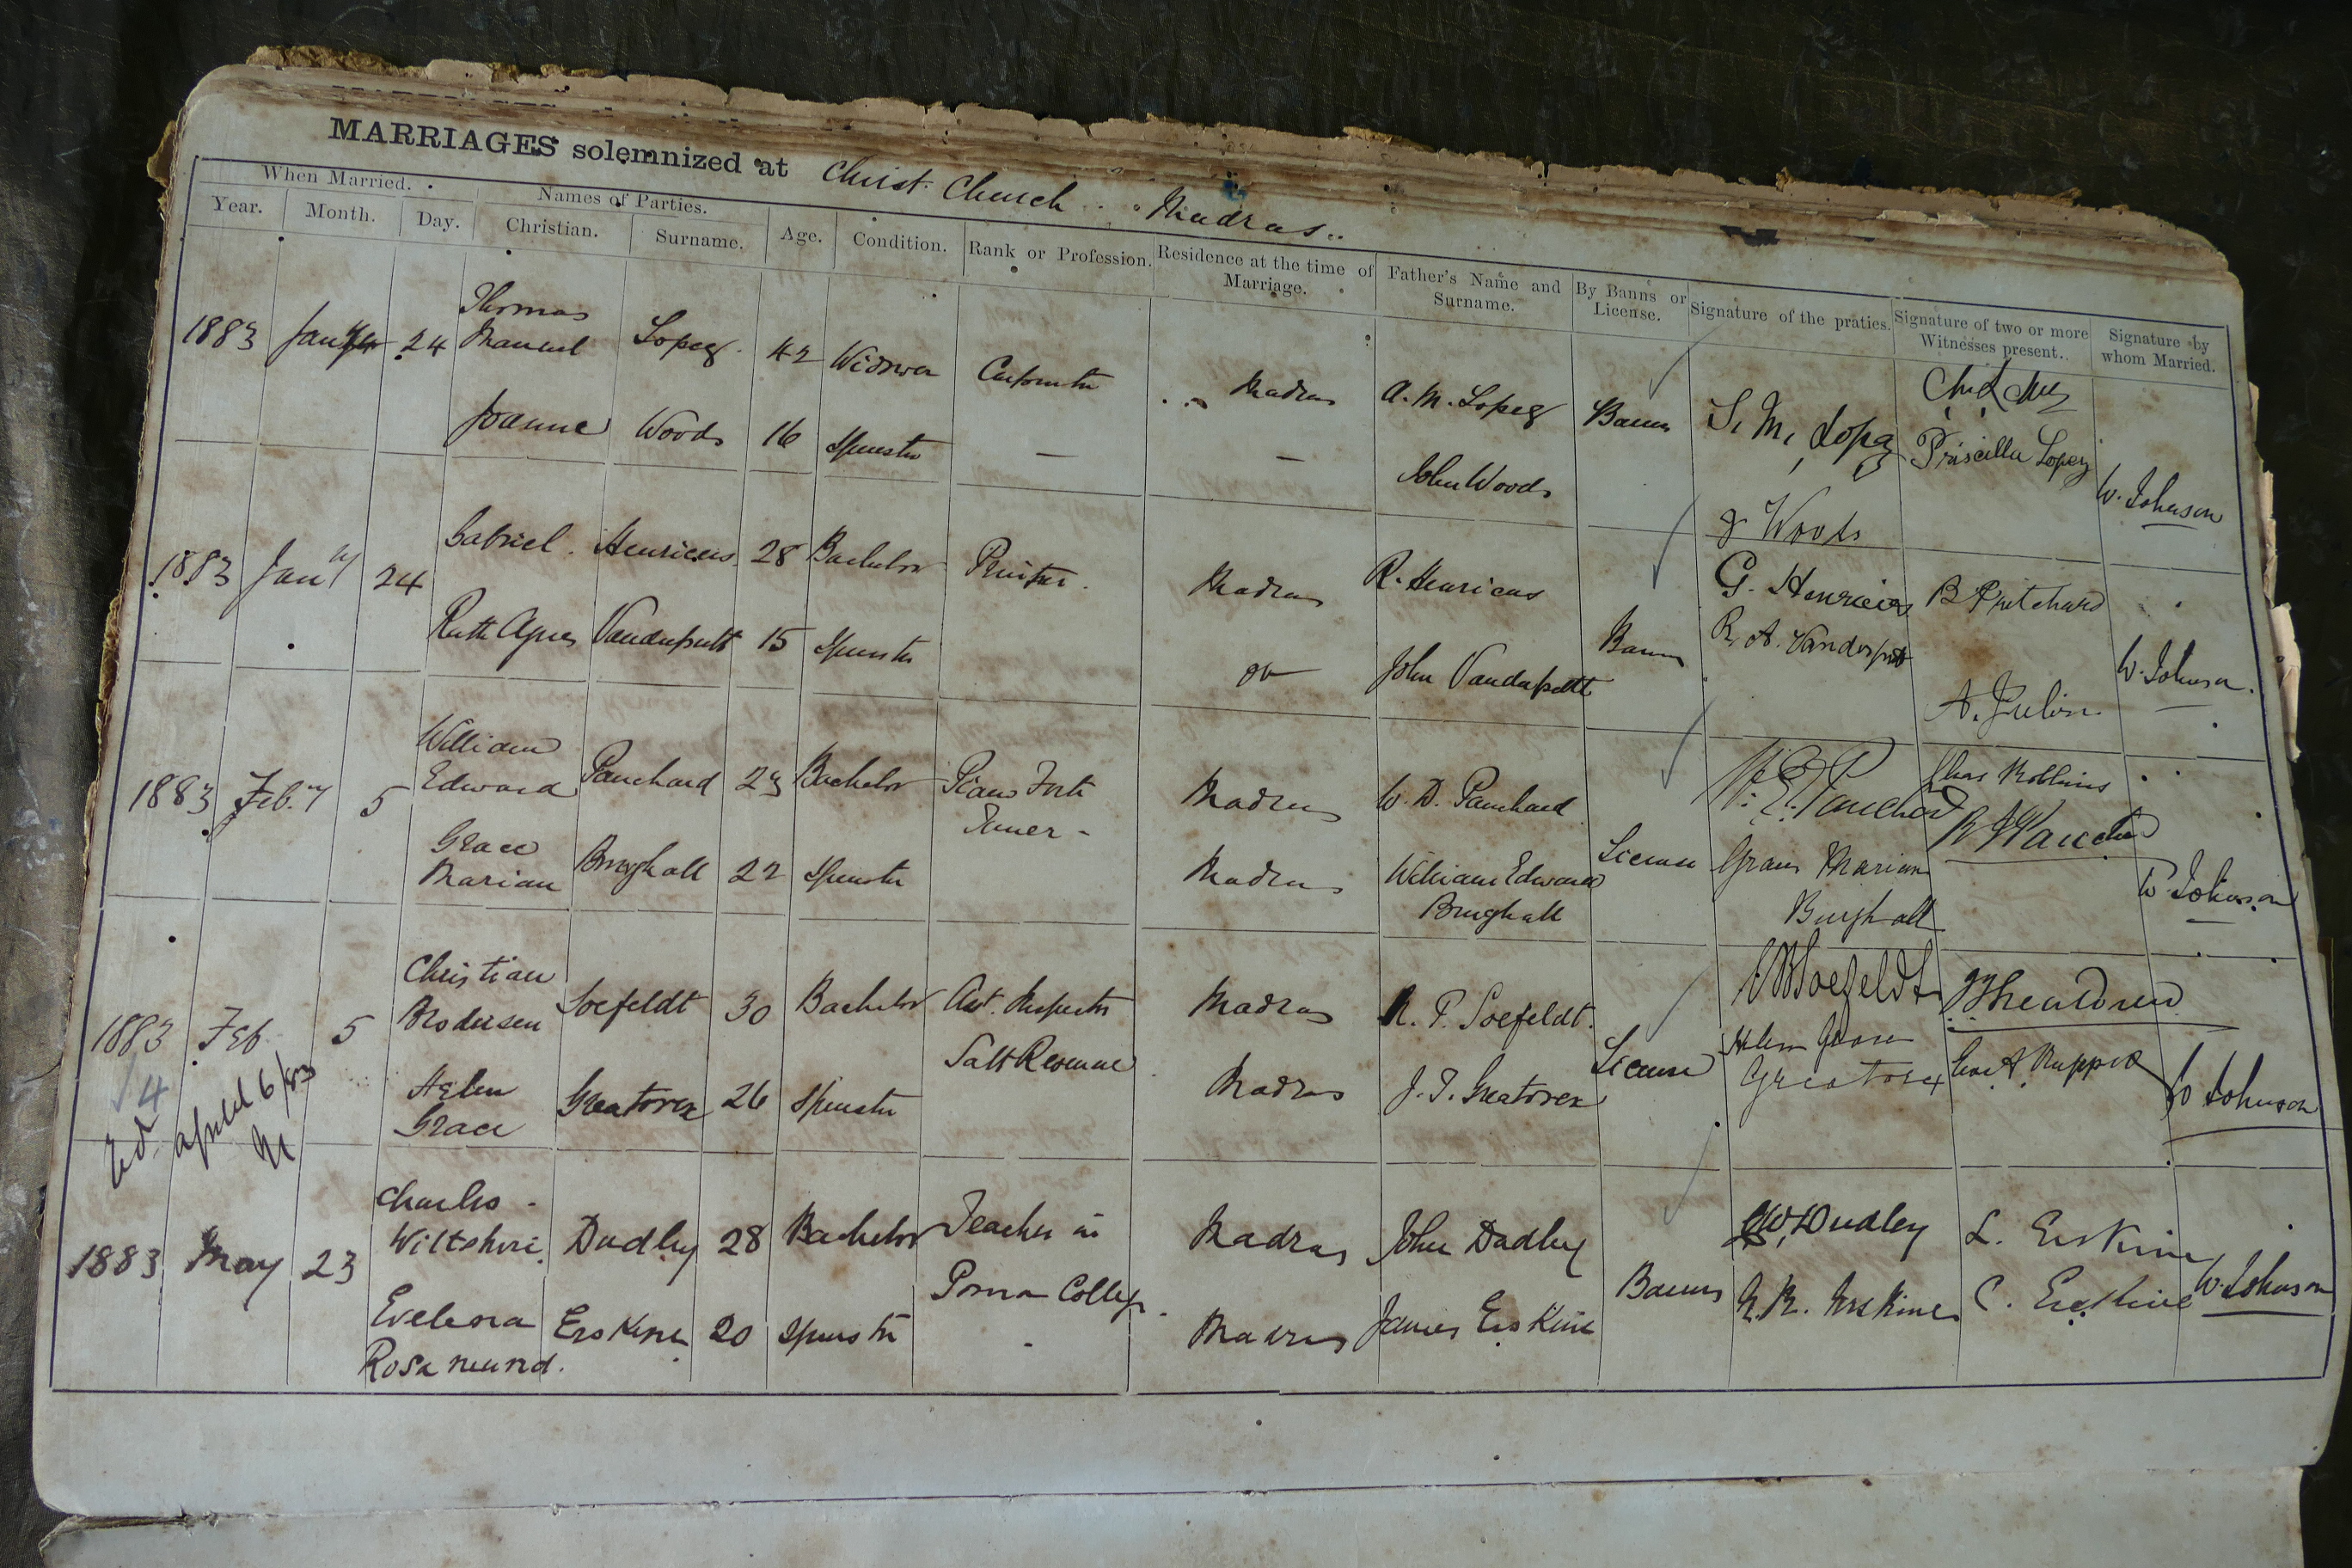 MARRIAGES solemnized at Christ Church Madras.
When Married. Names of Parties.
Year. Month. Day. Christian. Surname. Age. Condition. Rank or Profession. Residence at the time of Marriage. Father's Name and Surname. By Banns or License. Signature of the praties. Signature of two or more Witnesses present. Signature by whom Married.
1883 Jany 24 Thomas Manuel Lopez 42 Widower Carpenter Madras A. M. Lopez Banns T. M. Lopez
Joanne Woods 16 Spinster — — John Woods J Woods Priscilla Lopez W. Johnson
1883 Jany 24 Gabriel Henricus 28 Bachelor Printer Madras R. Henricus Banns G. Henricus B Pritchard
Ruth Agnes Vanderputt 15 Spinster do John Vanderputt R. A. Vanderputt A. Julin W. Johnson
1883 Feby 5 William Edward Panchard 23 Bachelor Piano Forte Tuner - Madras W. D. Panchard License W. E. Panchard Chas Robbins
Grace Marian Burghall 22 Spinster Madras William Edward Burghall Grace Marian Burghall W. Johnson
1883 Feb. 5 Christian Brodersen Soefeldt 30 Bachelor Asst. Inspector Salt Revenue Madras N. P. Soefeldt License Soefeldt
Helen Grace Greatorex 26 Spinster Madras J. T. Greatorex Helen Grace Greatorex Geo. A. Ruppell W Johnson
14
Ed. April 6/83
1883 May 23 Charles Wiltshire Dudley 28 Bachelor Teacher in College Madras John Dudley Banns C. W. Dudley L. Erskine
Evelena Rosamund. Erskine 20 Spinster - Madras James Erskine E. R. Erskine C. Erskine W. Johnson